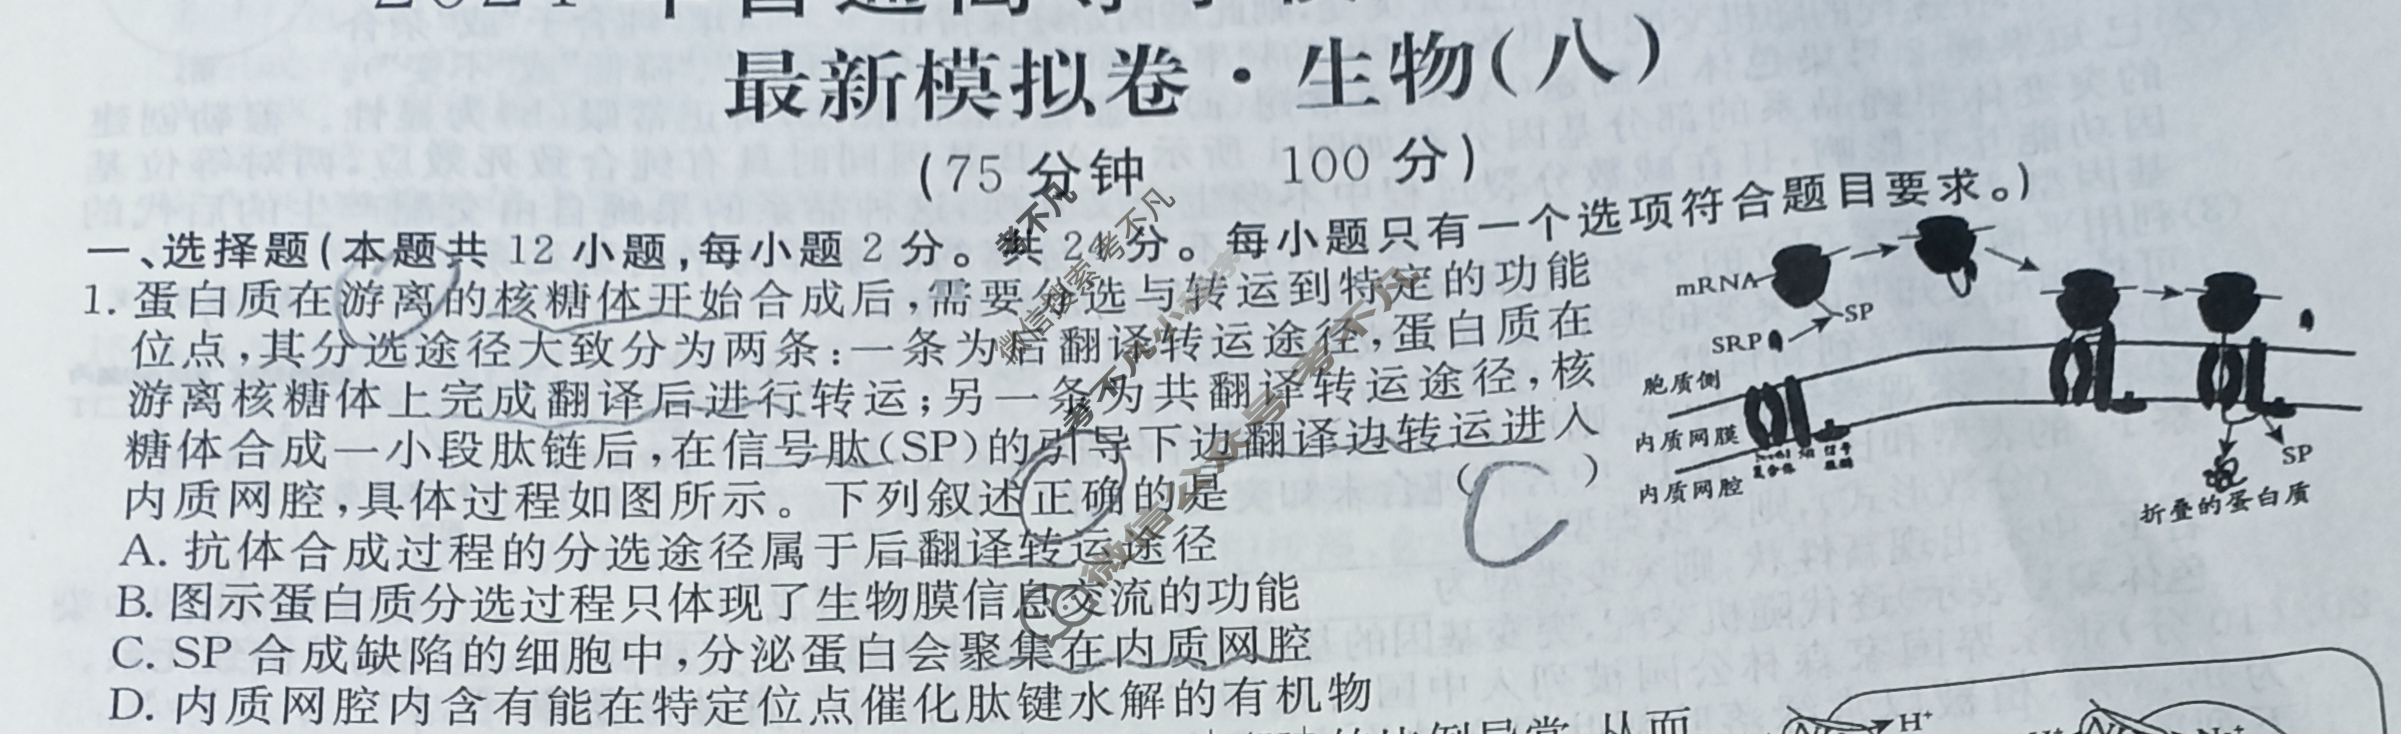 最新模拟卷·生物(八)
(75分钟 100分)
一、选择题(本题共12小题,每小题2分。共24分。每小题只有一个选项符合题目要求。)
1.蛋白质在游离的核糖体开始合成后,需要分选与转运到特定的功能
位点,其分选途径大致分为两条:一条为后翻译转运途径,蛋白质在
游离核糖体上完成翻译后进行转运;另一条为共翻译转运途径,核
糖体合成一小段肽链后,在信号肽(SP)的引导下边翻译边转运进入
内质网腔,具体过程如图所示。下列叙述正确的是 ( )
C
A.抗体合成过程的分选途径属于后翻译转运途径
B.图示蛋白质分选过程只体现了生物膜信息交流的功能
C.SP合成缺陷的细胞中,分泌蛋白会聚集在内质网腔
D.内质网腔内含有能在特定位点催化肽键水解的有机物
mRNA
SP
SRP
胞质侧
内质网膜
内质网腔
信号
肽酶
SP
折叠的蛋白质
考不凡
微信搜索考不凡
考不凡小程序
微信公众号 考不凡
H⁺